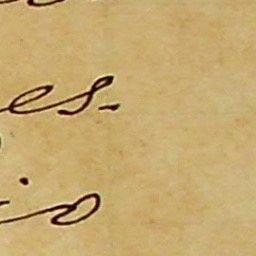 es-
io